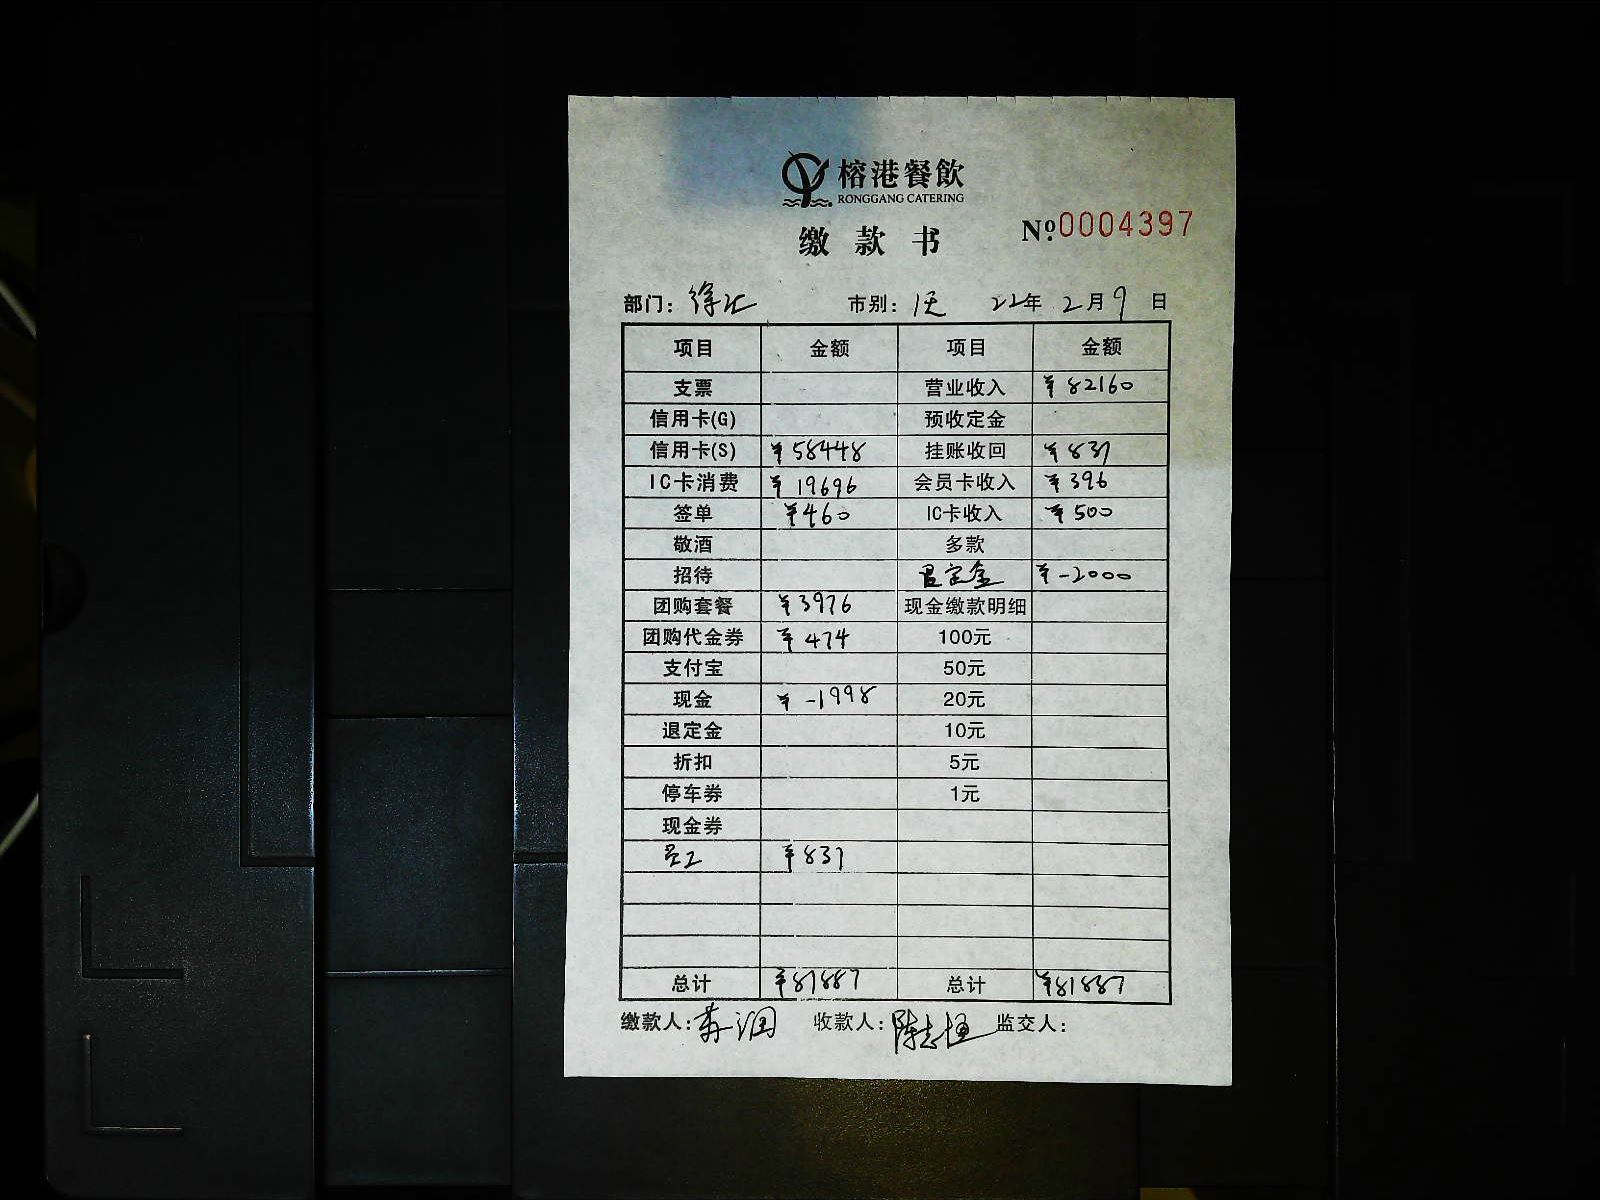 榕港餐飲
RONGGANG CATERING
缴款书 Nº.0004397
部门: 徐汇 市别: 1天 22年 2月 9日
项目 金额 项目 金额
支票 营业收入 ¥82160
信用卡(G) 预收定金
信用卡(S) ¥58448 挂账收回 ¥831
IC卡消费 ¥19696 会员卡收入 ¥396
签单 ¥460 IC卡收入 ¥500
敬酒 多款
招待 定金 ¥-2000
团购套餐 ¥3976 现金缴款明细
团购代金券 ¥474 100元
支付宝 50元
现金 ¥-1998 20元
退定金 10元
折扣 5元
停车券 1元
现金券
员工 ¥831
总计 ¥81887 总计 ¥81887
缴款人: 收款人: 陈志恒 监交人: